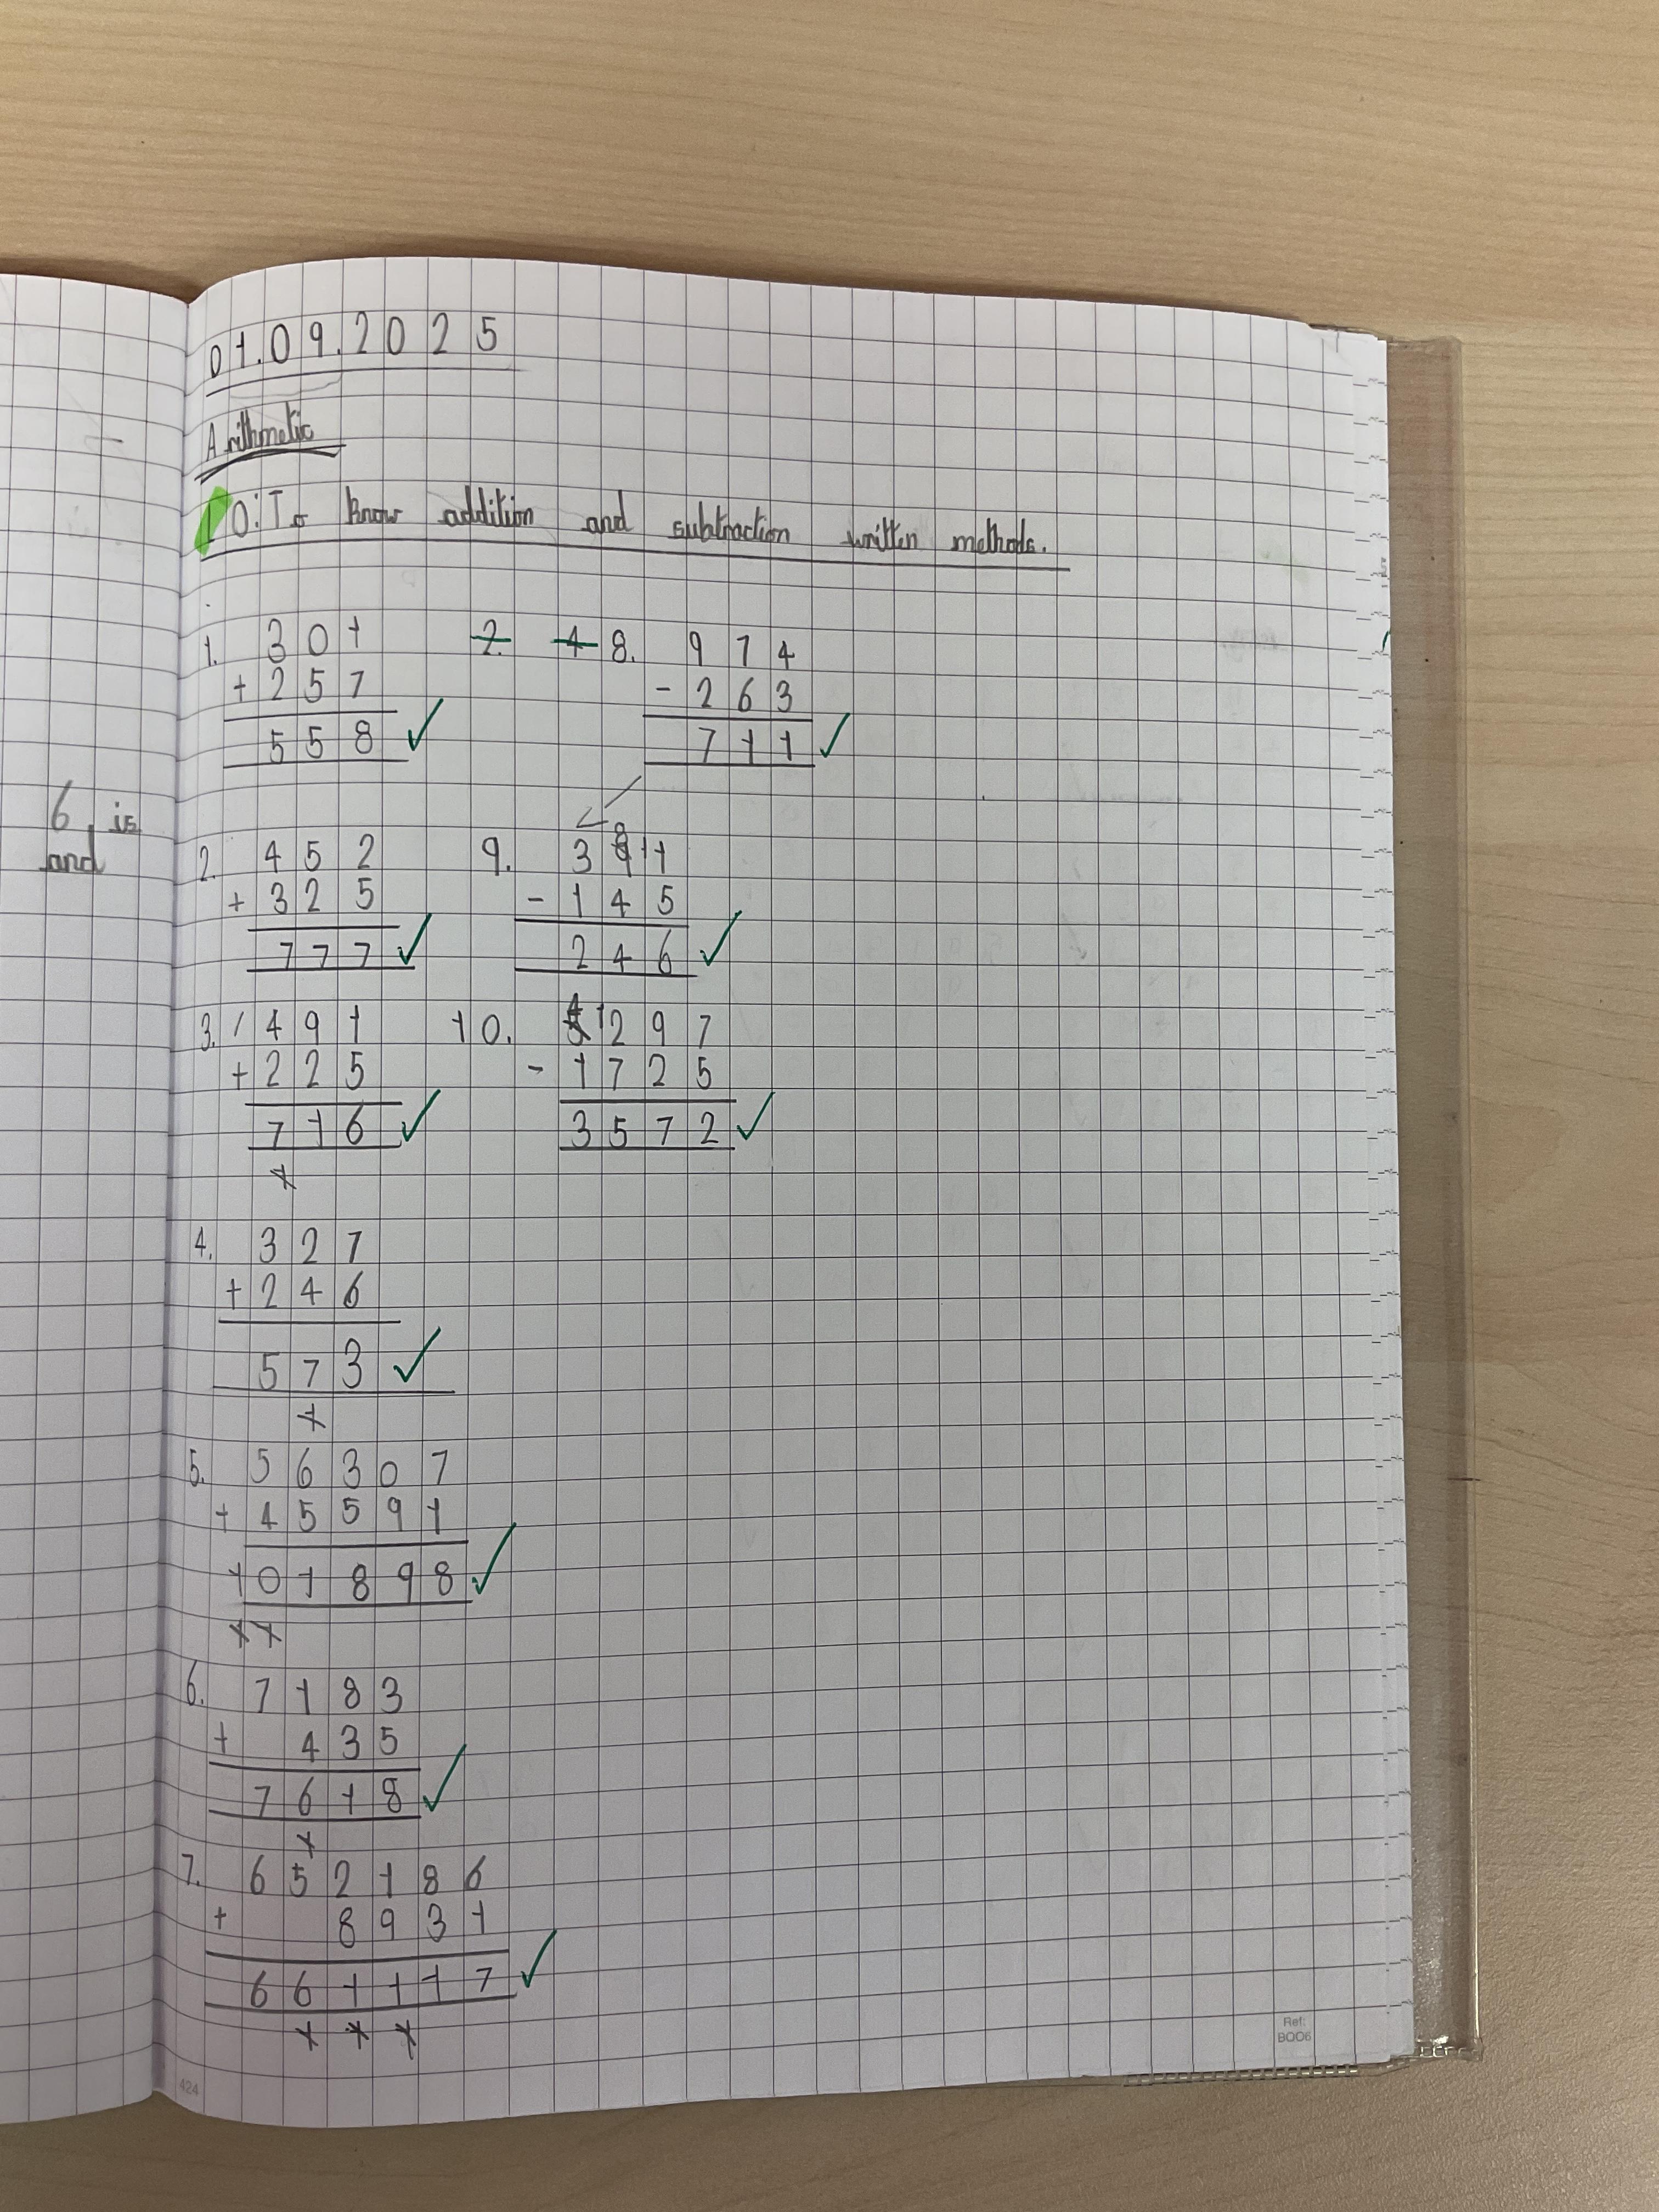 01.09.2025
Arithmetic
LO: To know addition and subtraction written methods.
1. 301
+ 257
558
2. 452
+ 325
777
3. 491
+ 225
716
1
4. 327
+ 246
573
1
5. 56307
+ 45591
101898
11
6. 7183
+ 435
7618
1
7. 652186
+ 8931
661117
111
7. 4 8. 974
- 263
711
8
9. 3911
- 145
246
4
10. 51297
- 1725
3572
6, is
and
Ref:
BOO6
424